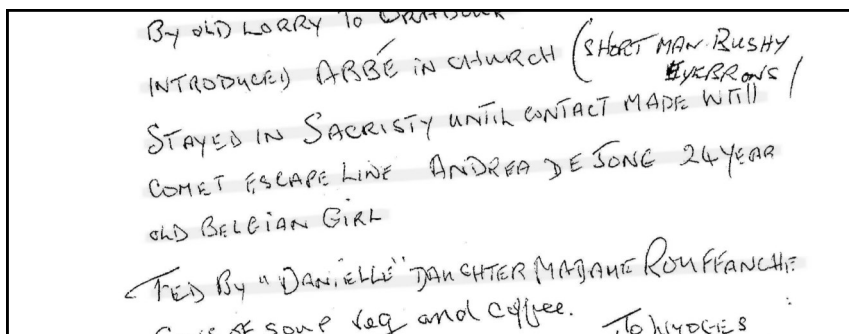 BY OLD LORRY TO
INTRODUCED ABBÉ IN CHURCH (SHORT MAN BUSHY
EYEBROWS)
STAYED IN SACRISTY UNTIL CONTACT MADE WITH
COMET ESCAPE LINE ANDREA DE JONG 24 YEAR
OLD BELGIAN GIRL
FED BY "DANIELLE" DAUGHTER MADAME ROUFFANCHE
OF SOUP VEG and COFFEE.
TO LIMOGES